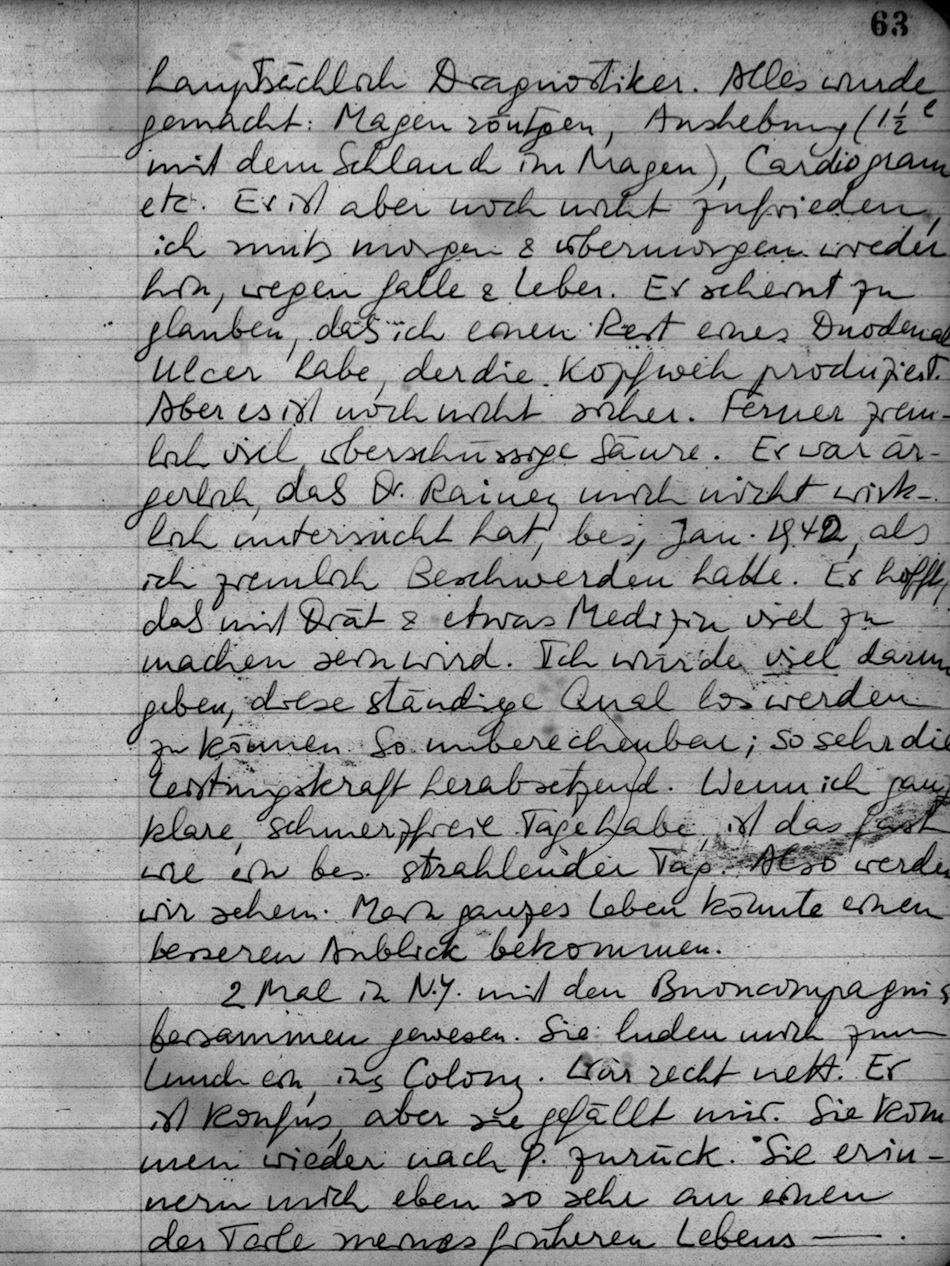 63
hauptsächlich Diagnostiker. Alles wurde
gemacht: Magen röntgen, Aushebung (1½ e
mit dem Schlauch im Magen), Cardiogram
etc. Er ist aber noch nicht zufrieden,
ich muß morgen & übermorgen wieder
hin, wegen Galle & Leber. Er scheint zu
glauben, daß ich einen Rest eines Duodenal
Ulcer habe, der die Kopfweh produziert.
Aber es ist noch nicht sicher. Ferner ziem-
lich viel überschüssige Säure. Er war är-
gerlich, daß Dr. Rainey mich nicht wirk-
lich untersucht hat, bes. Jan. 1942, als
ich ziemlich Beschwerden hatte. Er hofft,
daß mit Diät & etwas Medizin viel zu
machen sein wird. Ich würde viel darum
geben, diese ständige Qual loswerden
zu können. So unberechenbar; so sehr die
Leistungskraft herabsetzend. Wenn ich ganz
klare, schmerzfreie Tage habe, ist das fast
wie ein bes. strahlender Tag. Also werden
wir sehen. Mein ganzes Leben könnte einen
besseren Anblick bekommen.
2 Mal in N.Y. mit den Buoncompagnis
beisammen gewesen. Sie luden mich zum
Lunch ein, ins Colony. War recht nett. Er
ist konfus, aber sie gefällt mir. Sie kom
men wieder nach P. zurück. Sie erin-
nern mich eben so sehr an einen
der Teile meines früheren Lebens — .